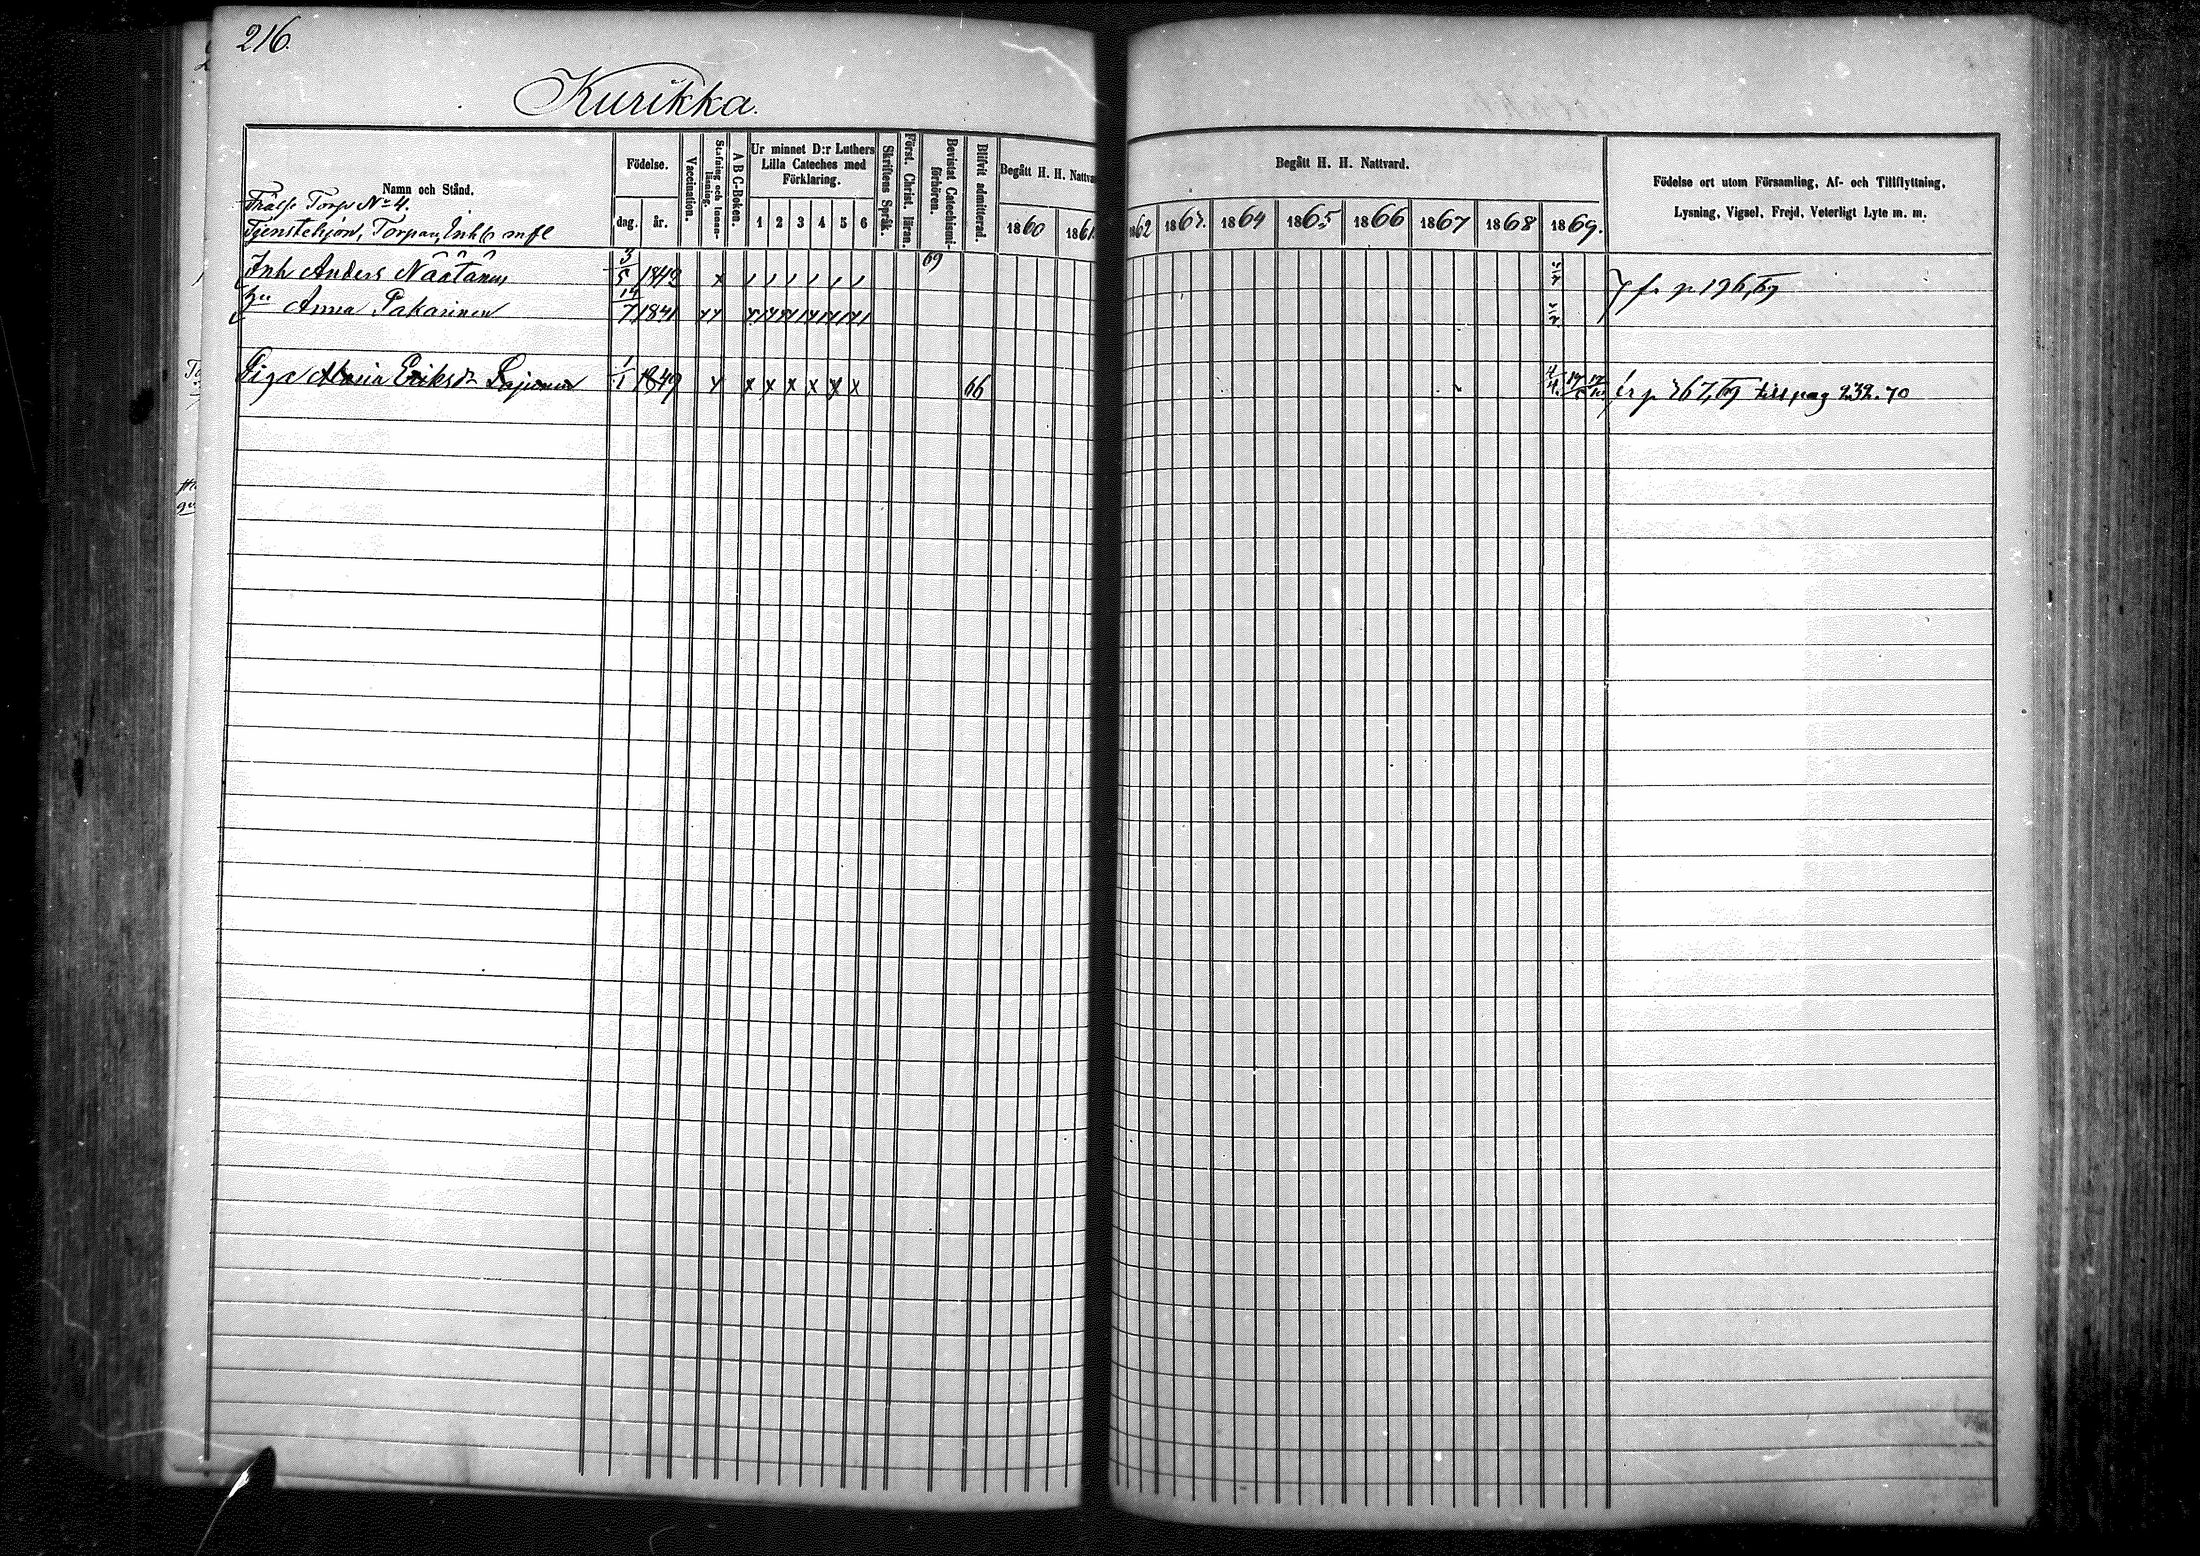 216.
Kurikka.
Namn och Stånd.
Frälse Torps No 4.
Tjenstehjon, Torpare, Inh. mfl
Födelse.
dag. år.
Vaccination.
Stafning och Innanläsning.
A B C-Boken.
Ur minnet D:r Luthers
Lilla Cateches med
Förklaring.
1 2 3 4 5 6
Skriftens Språk.
Först. Christ. läran.
Bevistat Catechismiförhören.
Blifvit admitterad.
Begått H. H. Nattva
1860 1861.
Begått H. H. Nattvard.
1862 1863. 1864 1865 1866 1867 1868 1869.
Födelse ort utom Församling, Af- och Tillflyttning,
Lysning, Vigsel, Frejd, Veterligt Lyte m. m.
69
Inh Anders Näätänen 3/5 1842 x
fr p 196,69
hu Anna Pakarinen 14/7 1841
Piga Maria Eriksdr Lajunen 1/1 1849 x x x x x x 66
fr p 267,69 till pag 232.70